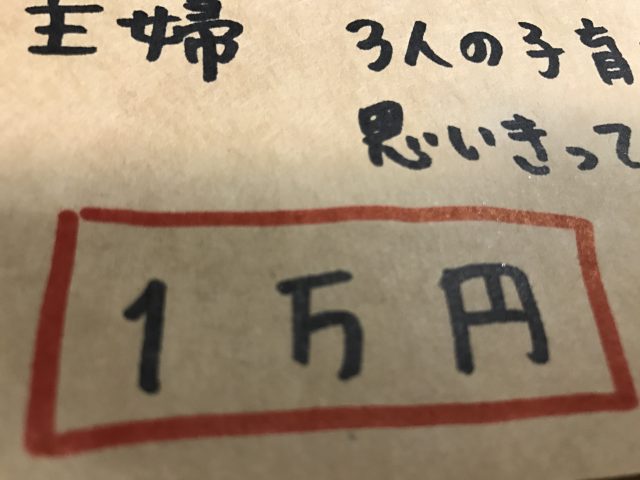 主婦 3人の子育
思いきって
1万円